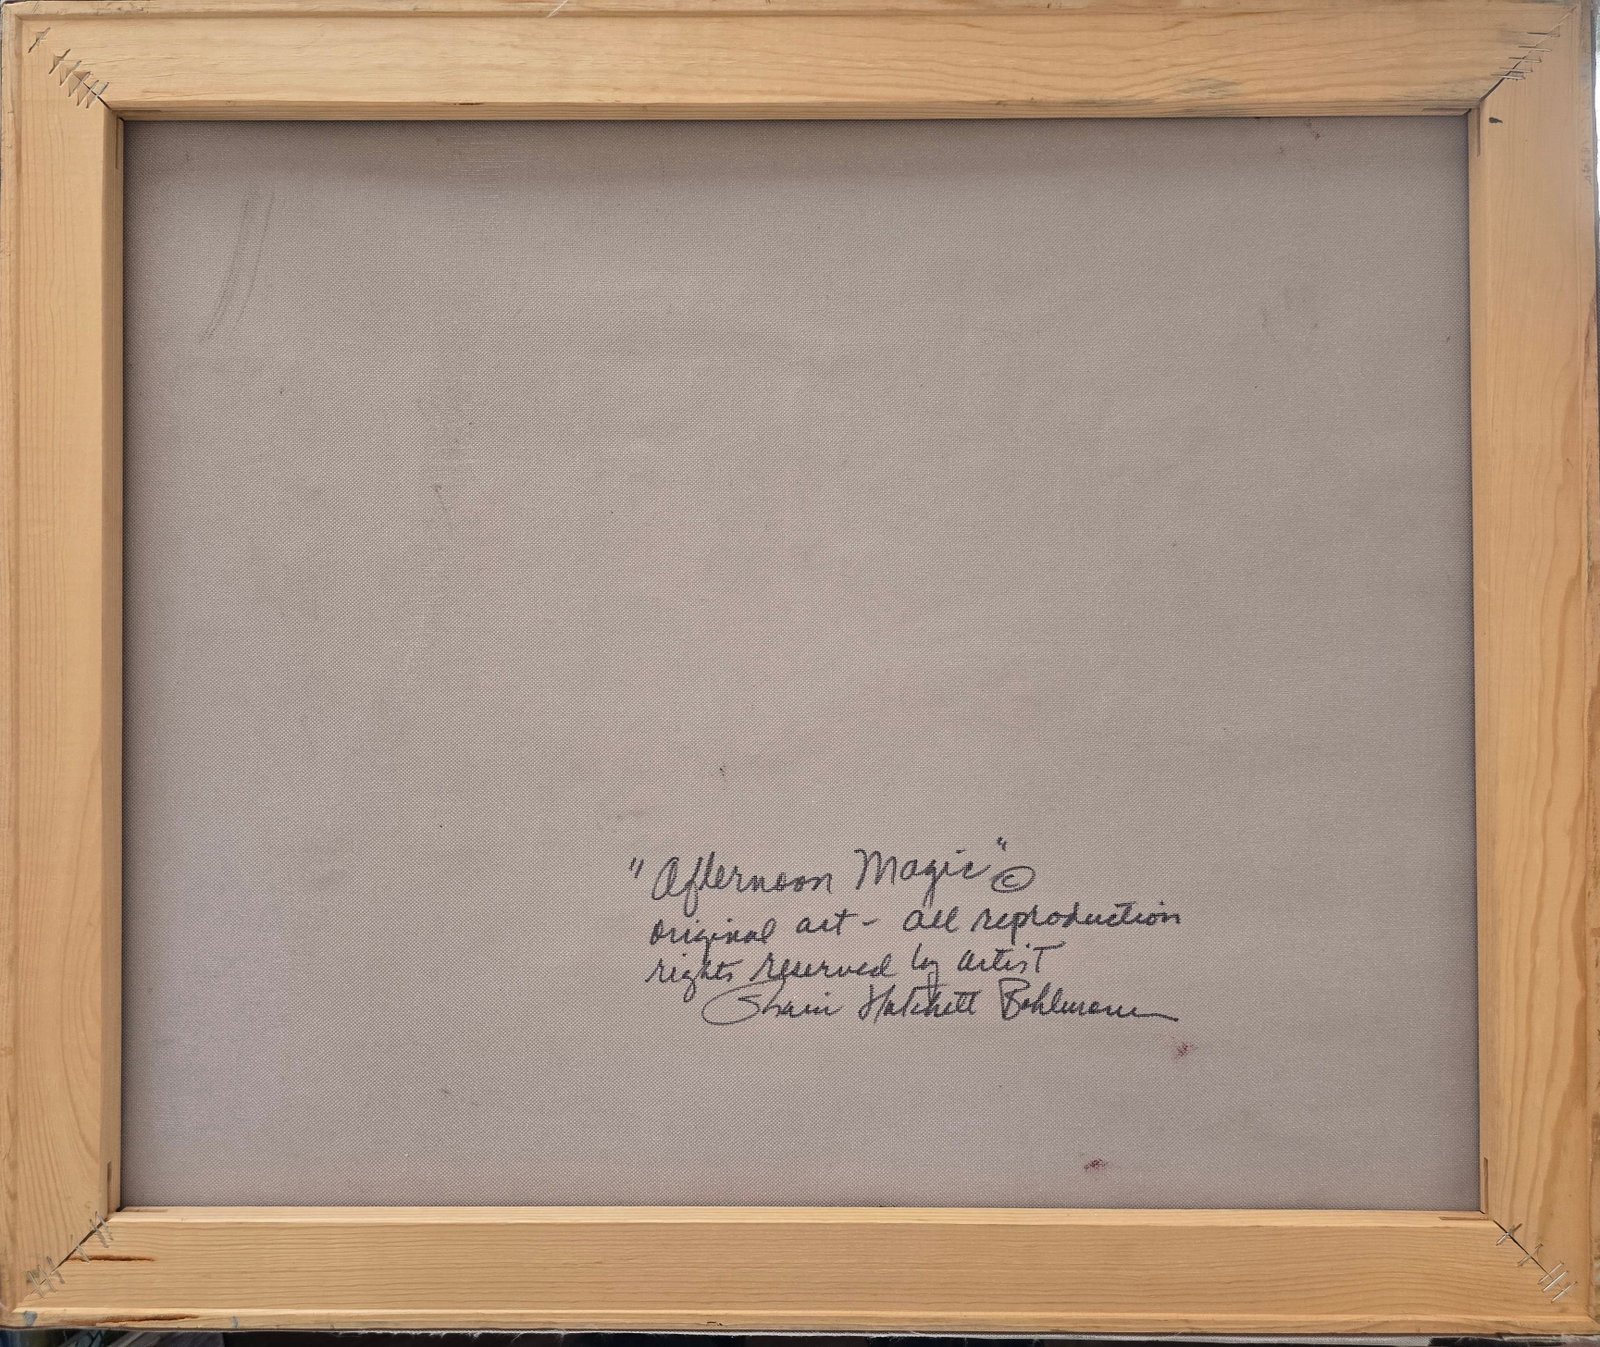 "Afternoon Magic" ©
original art - all reproduction
rights reserved by artist
Hatchett Bohlmann